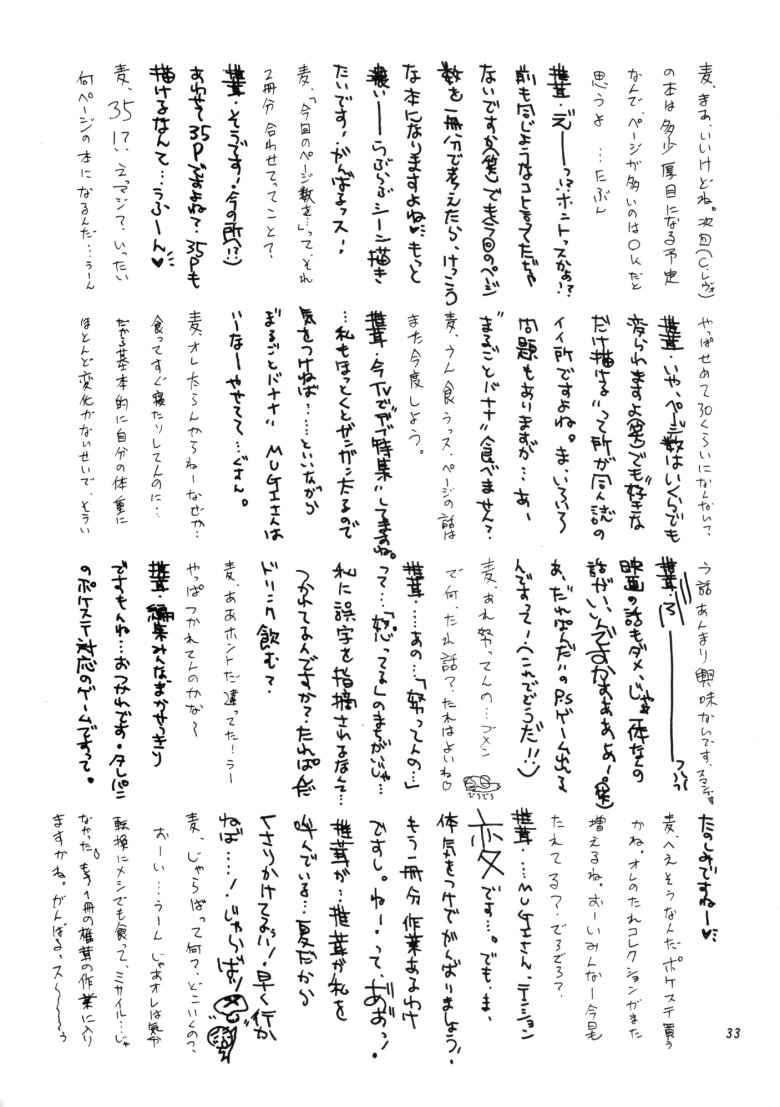 麦、まあ、いいけどね。次回(C.レヴォ)
の本は多少厚目になる予定
なんで、ページが多いのはOKだと
思うよ…たぶん
椎茸・え゛ーっっ!?ホントっスかぁ!?
前も同じようなコト言ってたじゃ
ないですか(笑)でも今回のページ
数を一冊分で考えたら、けっこう
な本になりますよね♥もっと
濃いーーらぶらぶシーン描き
たいです!がんばるっス!
麦、「今回のページ数を…」って、それ
2冊分合わせてってこと?
椎茸・そうです!今の所(!?)
あわせて35Pですよね?35Pも
描けるなんて…うふーん♥
麦、35!?、えっマジで、いったい
何ページの本になるんだ…うーん
やっぱせめて30くらいになんない?
椎茸・いや、ページ数はいくらでも
変られますよ(笑)でも"好きな
だけ描ける"って所が同人誌の
イイ所ですよね。ま、いろいろ
問題もありますが…あ、
"まるごとバナナ"食べません?
麦、うん食うっス、ページの話は
また今度しよう。
椎茸・今TVで"デブ特集"してますね。
…私もほっとくとガンガン太るので
気をつけねば……といいながら
"まるごとバナナ" MUGIさんは
いーなーやせてて…ぐすん。
麦、オレ太らんからねーなぜか?
食ってすぐ寝たりしてんのに…
だから基本的に自分の体重に
ほとんど変化がないせいで、そうい
う話あんまり興味ないです、スマンです
映画の話もダメ、じゃぁ一体なんの
話がいいんですかぁぁぁぁー!(笑)
あ、"たれぱんだ"のPSゲーム出る
んですってー!(これでどうだ!!)
麦、あれ努ってんの…ゴメン
で何、たれ話?たれはよいね♡
でろでろ
椎茸……あの…「努ってんの…」
って…「怒ってる」のまちがいじゃ…
私に誤字を指摘されるなんて…
つかれてるんですか?たれぱんだ
ドリンク飲む?
麦、ああホントだ違ってた!うー
やっぱつかれてんのかな〜
椎茸・編集みんなまかせっきり
ですもんね…おつかれです・タレパン
のポケステ対応のゲームですって。
たのしみですねー♥
麦、へえそうなんだ ポケステ買う
かね。オレのたれコレクションがまた
増えるね。おーいみんなー今日も
たれてるう?でろでろ?
椎茸・…MUGIさん、テーション
変です…。でも、ま、
体気をつけてがんばりましょう!
もう一冊分作業あるわけ
ですし。ねー!って、ああっ!
椎茸が…椎茸が私を
呼んでいる…夏だから
くさりかけてるっ!早く行か
ねば…!じゃらばっ!
麦、じゃらばって何?、どこいくの?
おーい…うーん じゃあオレは気分
転換にメシでも食って、ミサイル…じゃ
なかった。もう1冊の椎茸の作業に入り
ますかね。がんばるっス〜〜〜う
33